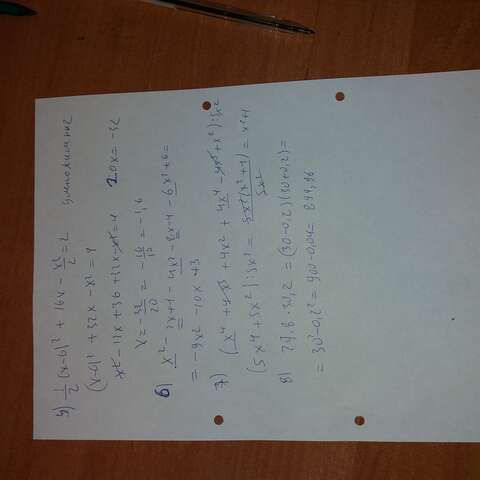 5) 1/2 (x-6)² + 16x - x²/2 = 2 умножим на 2
(x-6)² + 32x - x² = 4
x² - 12x + 36 + 32x - x² = 4 20x = -32
x = -32/20 = -16/10 = -1,6
6) x² - 2x + 1 - 4x² - 8x - 4 - 6x² + 6 =
= -9x² - 10x + 3
7) (x⁴ + 4x³ + 4x² + 4x⁴ - 4x³ + x²) : 5x²
(5x⁴ + 5x²) : 5x² = 5x²(x² + 1)/5x² = x² + 1
8) 29,8 · 30,2 = (30 - 0,2)(30 + 0,2) =
= 30² - 0,2² = 900 - 0,04 = 899,96